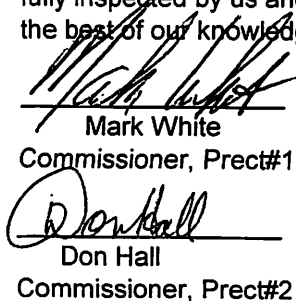 fully inspected by us and
the best of our knowledg
Mark White
Mark White
Commissioner, Prect#1
Don Hall
Don Hall
Commissioner, Prect#2